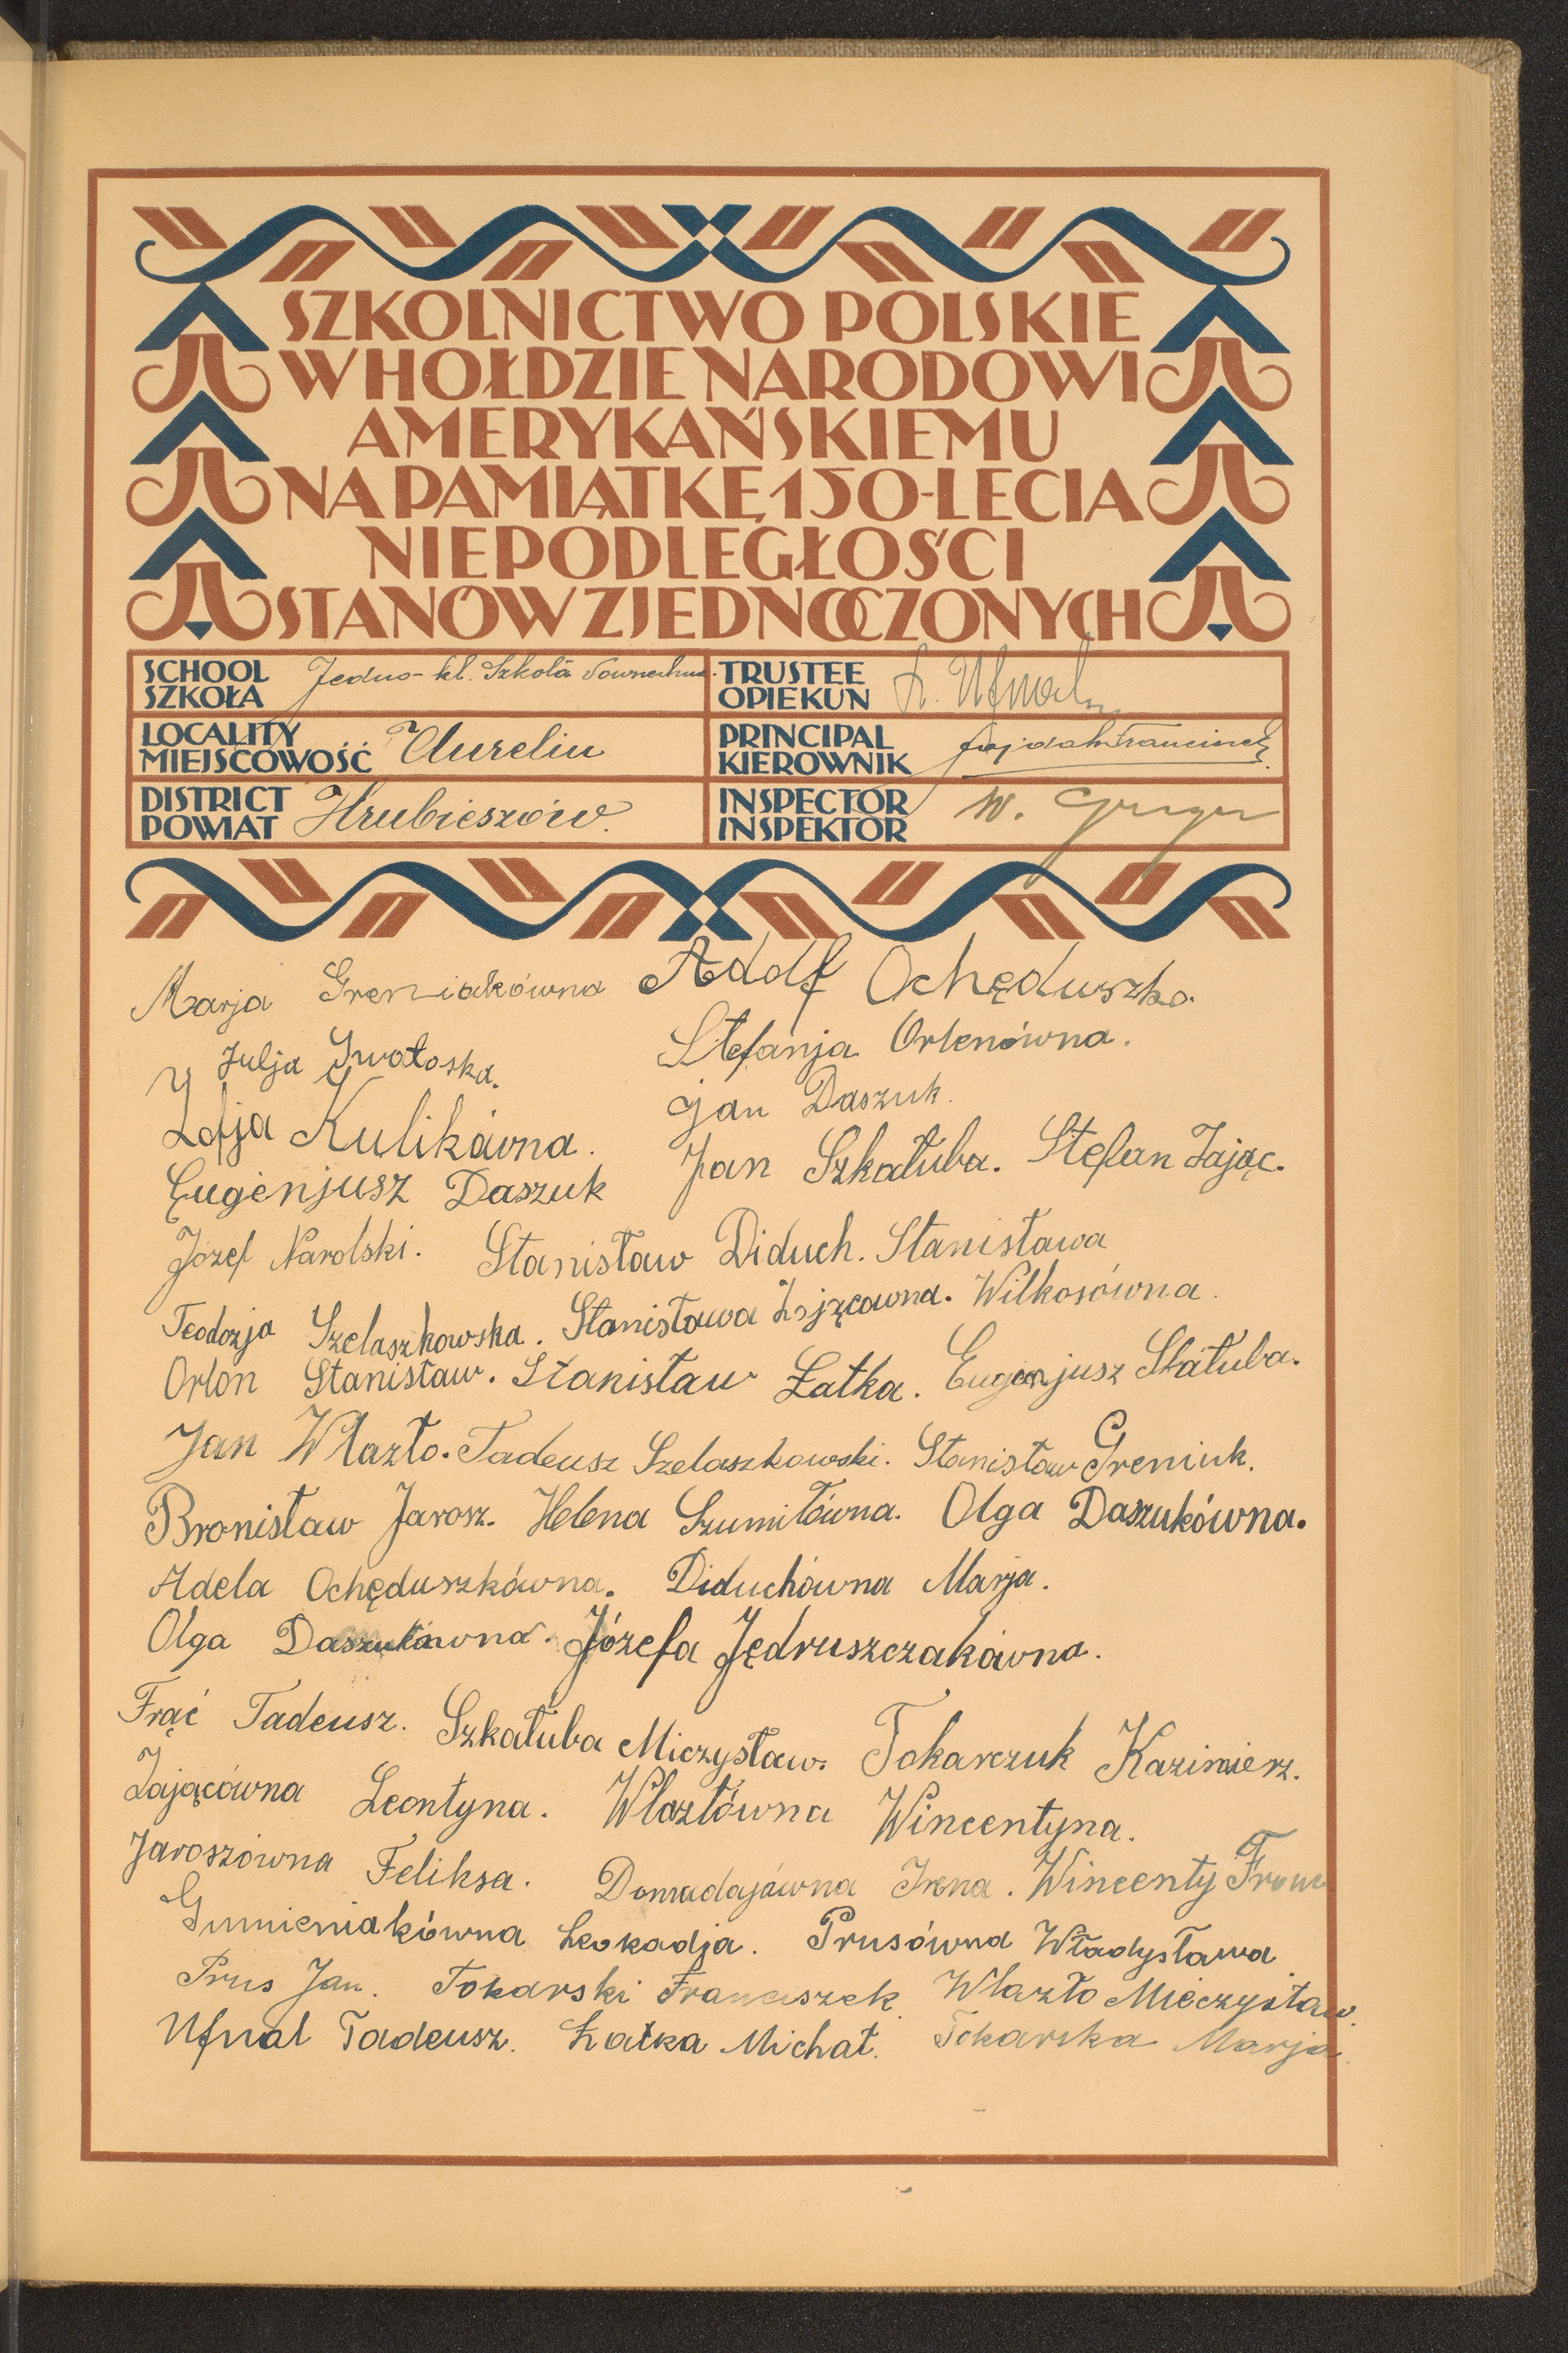 SZKOLNICTWO POLSKIE
W HOŁDZIE NARODOWI
AMERYKAŃSKIEMU
NA PAMIĄTKĘ 150-LECIA
NIEPODLEGŁOŚCI
STANÓW ZJEDNOCZONYCH
SCHOOL
SZKOŁA
Jedno-kl. Szkoła
TRUSTEE
OPIEKUN
Ufnal
LOCALITY
MIEJSCOWOŚĆ
Aurelin
PRINCIPAL
KIEROWNIK
DISTRICT
POWIAT
Hrubieszów.
INSPECTOR
INSPEKTOR
W.
Marja Greniakówna Adolf Ochęduszko.
Julja Swatoska. Stefanja Orlenówna.
Zofja Kulikówna. Jan Daszuk.
Eugenjusz Daszuk Jan Szkałuba. Stefan Zając.
Józef Narolski. Stanisław Diduch. Stanisława
Teodozja Szelaszkowska. Stanisława Zajęcowna. Wilkosówna.
Orlon Stanisław. Stanisław Łatka. Eugenjusz Skałuba.
Jan Wlazło. Tadeusz Szelaszkowski. Stanisław Greniuk.
Bronisław Jarosz. Helena Szumiłówna. Olga Daszukówna.
Adela Ochęduszkówna. Diduchówna Marja.
Olga Daszukówna. Józefa Jędruszczakówna.
Frąć Tadeusz. Szkałuba Miczysław. Tokarczuk Kazimierz.
Zającówna Leontyna. Wlazłówna Wincentyna.
Jaroszówna Feliksa. Domadajówna Irena. Wincenty
Gumieniakówna Leokadja. Prusówna Władysława
Prus Jan. Tokarski Franciszek. Wlazło Mieczysław.
Ufnal Tadeusz. Łatka Michał. Tokarska Marja.